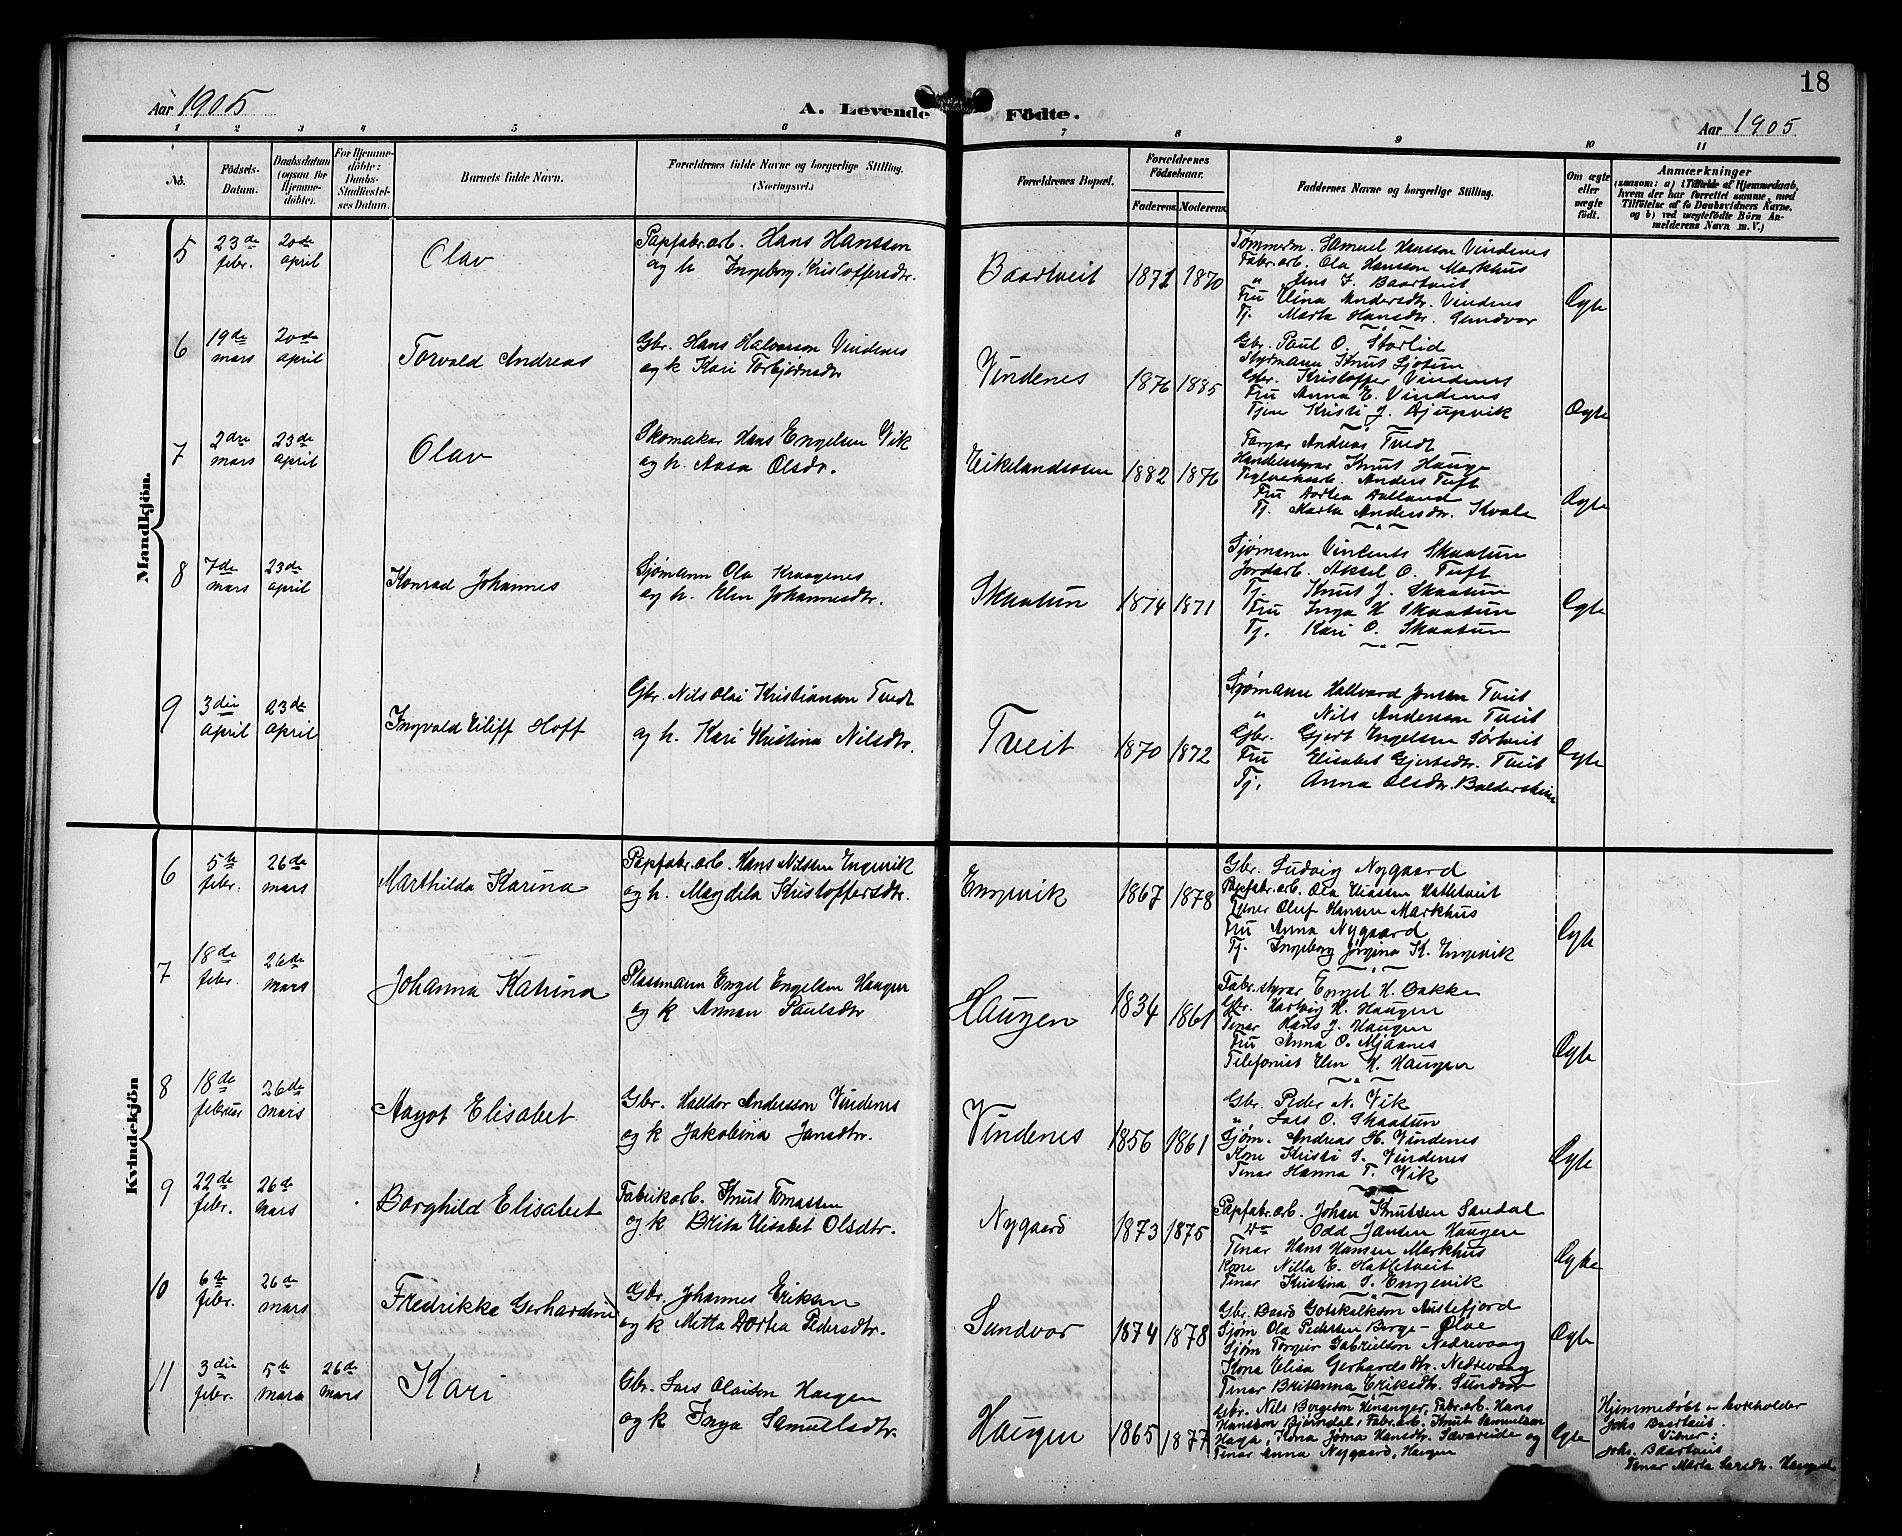 18
Aar 1905
A. Levende Födte.
Aar 1905
1 2 3 4 5 6 7 8 9 10 11
No.
Födsels-Datum.
Daabsdatum (ogsaa for Hjemme-döbte).
For Hjemme-döbte: Daabs-Stadfæstel-ses Datum.
Barnets fulde Navn.
Forældrenes fulde Navne og borgerlige Stilling. (Næringsvei.)
Forældrenes Bopæl.
Forældrenes Födselsaar.
Faderens. Moderens.
Faddernes Navne og borgerlige Stilling.
Om ægte eller uægte födt.
Anmærkninger
(saasom: a) i Tilfælde af Hjemmedaab, hvem der har forrettet samme, med Tilföielse af to Daabsvidners Navne. og b) ved uægtefödte Börn An-melderens Navn m. V.)
Mandkjön.
5 23de febr. 20de april Olav
Papfabr.arb. Hans Hansson
og h. Ingeborg Kristoffersdtr.
Baartveit 1871 1870
Tømmerm. Samuel Hansson Vindenes
Fabr.arb. Ola Hansson Markhus
" Jens J. Baartveit
Fru Elina Andersdtr. Vindenes
Tj. Marta Hansdtr. Sundvor
Ægte
6 19de mars 20de april Torvald Andreas
Gbr. Hans Halvorson Vindenes
og k Kari Torbjørnsdtr
Vindenes 1876 1885
Gbr. Paul O. Storlid
Styrmann Knut Sjotun
Gbr. Kristoffer Vindenes
Fru Anna E. Vindenes
Tjen Kristi J. Djupvik
Ægte
7 2dre mars 23de april Olav
Skomakar Hans Engelsen Vik
og h. Aasa Olsdr.
Eikelandsosen 1882 1876
Fargar Andreas Tvedt
Handelsstyrar Knut Hauge
Teglverksarb. Anders Tuft
Fru Dortea Dalland
Tj. Marta Andersdtr. Kvale
Ægte
8 7de mars 23de april Konrad Johannes
Sjømann Ola Kraagenes
og h. Elen Johannesdtr.
Skaatun 1874 1871
Sjømann Vincents Skaatun
Jordarb. Aksel O. Tuft
Tj. Knut J. Skaatun
Fru Inga H Skaatun
Tj. Kari O. Skaatun
Ægte
9 3die april 23de april Ingvald Eiliff Hoff
Gbr. Nils Olai Kristiansen Tvedt
og h. Kari Kristina Nilsdtr.
Tveit 1870 1872
Sjømann Hallvard Jensen Tveit
" Nils Anderson Tveit
Gbr. Gjert Engelsen Sørtveit
Fru Elisabet Gjertsdtr. Tveit
Tj. Anna Olsdtr. Baldersheim
Ægte
Kvindekjön
6 5te febr. 26de mars Marthilda Karina
Papfabr.arb. Hans Nilssen Engevik
og h. Magdela Kristoffersdtr.
Engevik 1867 1878
Gbr. Ludvig Nygaard
Papfabr.arb. Ola Eliassen Hatletveit
Tjener Oluf Hansen Markhus
Fru Anna Nygaard
Tj. Ingeborg Jørgina K. Engevik
Ægte
7 18de febr. 26de mars Johanna Katrina
Plassmann Engel Engelsen Haugen
og k Annan Paulsdtr
Haugen 1834 1861
Fabr.styrar Engel H. Bakke
Gbr. Hartvig H. Haugen
Tenar Hans J. Haugen
Fru Anna O. Mjaanes
Telefonist Elen H. Haugen
Ægte
8 18de februar 26de mars Aagot Elisabet
Gbr. Halldor Andersson Vindenes
og k Jakobina Jansdtr.
Vindenes 1856 1861
Gbr. Peder N. Vik
" Lars O. Skaatun
Sjøm. Andreas H. Vindenes
Kone Kristi S. Vindenes
Tenar Hanna T. Vik
Ægte
9 22de febr. 26de mars Borghild Elisabet
Fabrikarb. Knut Tomassen
og k Brita Elisabet Olsdtr.
Nygaard 1873 1875
Papfabr.arb. Johan Knutsen Sandal
do Odd Jansen Haugen
Tenar Hans Hansen Markhus
Kone Nilla E. Hatletveit
Tenar Kristina S. Engevik
Ægte
10 6te febr. 26de mars Fredrikke Gerhardine
Gbr. Johannes Eriksen
og k Mitta Dortea Pedersdtr.
Sundvor 1874 1878
Gbr. Baard Gotskalkson Austefjord
Sjøm Ola Pedersen Berge - Ølve
Sjøm Torgeir Gabrielson Nedrevaag
Kona Elisa Gerhardsdtr. Nedrevaag
Tenar Britanna Eriksdtr. Sundvor
Ægte
11 3die febr. 5te mars 26de mars Kari
Gbr. Lars Olaison Haugen
og k Inga Samuelsdtr.
Haugen 1865 1877
Gbr. Nils Bergeson Henanger, Fabr.arb. Hans
Hansson Bjørndal, Fabr.arb. Knut Samuelson
Haga, Kona Jørna Hansdtr. Sævareide og
Tenar Anna Nygaard, Haugen
Ægte
Hjemmedøbt av korkholder
Johs Baartveit.
Vitner:
Johs. Baartveit
Tenar Marta Larsdtr. Haugen